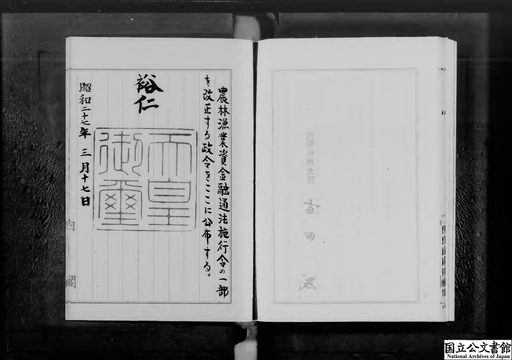 農林漁業資金融通法施行令の一部
を改正する政令をここに公布する。
裕仁
天皇
御璽
昭和二十七年 三月十七日
内閣
国立公文書館
National Archives of Japan